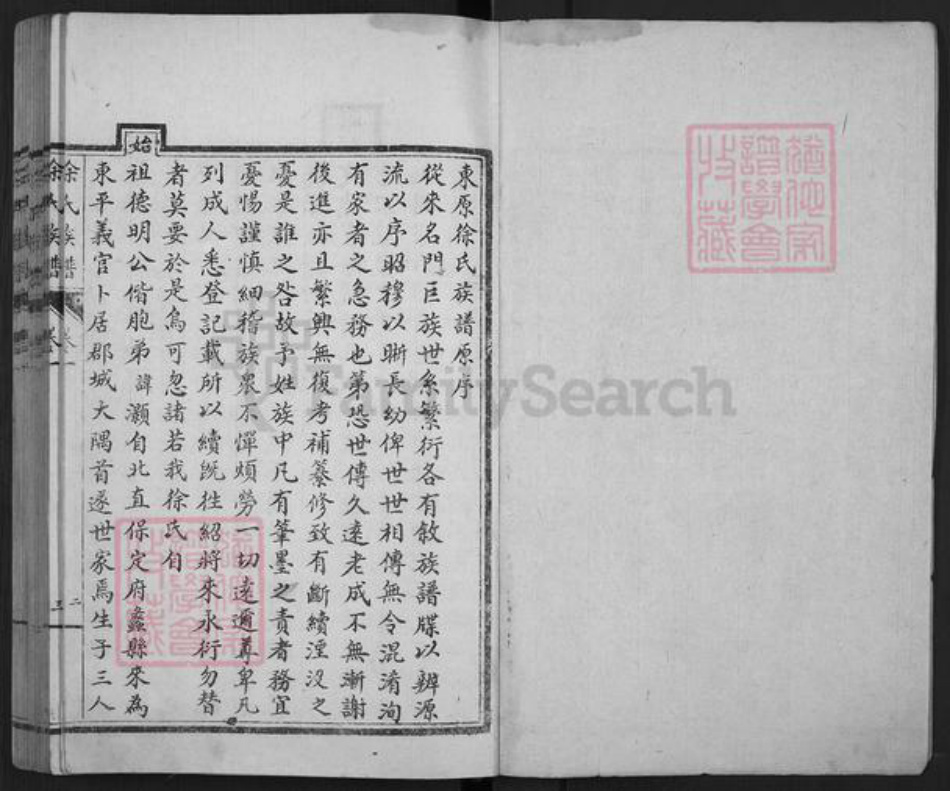 東原徐氏族譜原序
從來名門巨族世系繁衍各有敘族譜牒以辨源
流以序昭穆以晰長幼俾世世相傳無令混淆洵
有家者之急務也第恐世傳久遠老成不無漸謝
後進亦且繁興無復考補纂修致有斷續湮沒之
憂是誰之咎故予姓族中凡有筆墨之責者務宜
憂惕謹慎細稽族眾不憚煩勞一切遠邇尊卑凡
列成人悉登記載所以續既往紹將來永衍勿替
者莫要於是烏可忽諸若我徐氏自
始
祖德明公偕胞弟諱灝自北直保定府蠡縣來為
東平義官卜居郡城大隅首遂世家焉生子三人
徐氏族譜
卷一
二
三
譜學會
收藏
FamilySearch